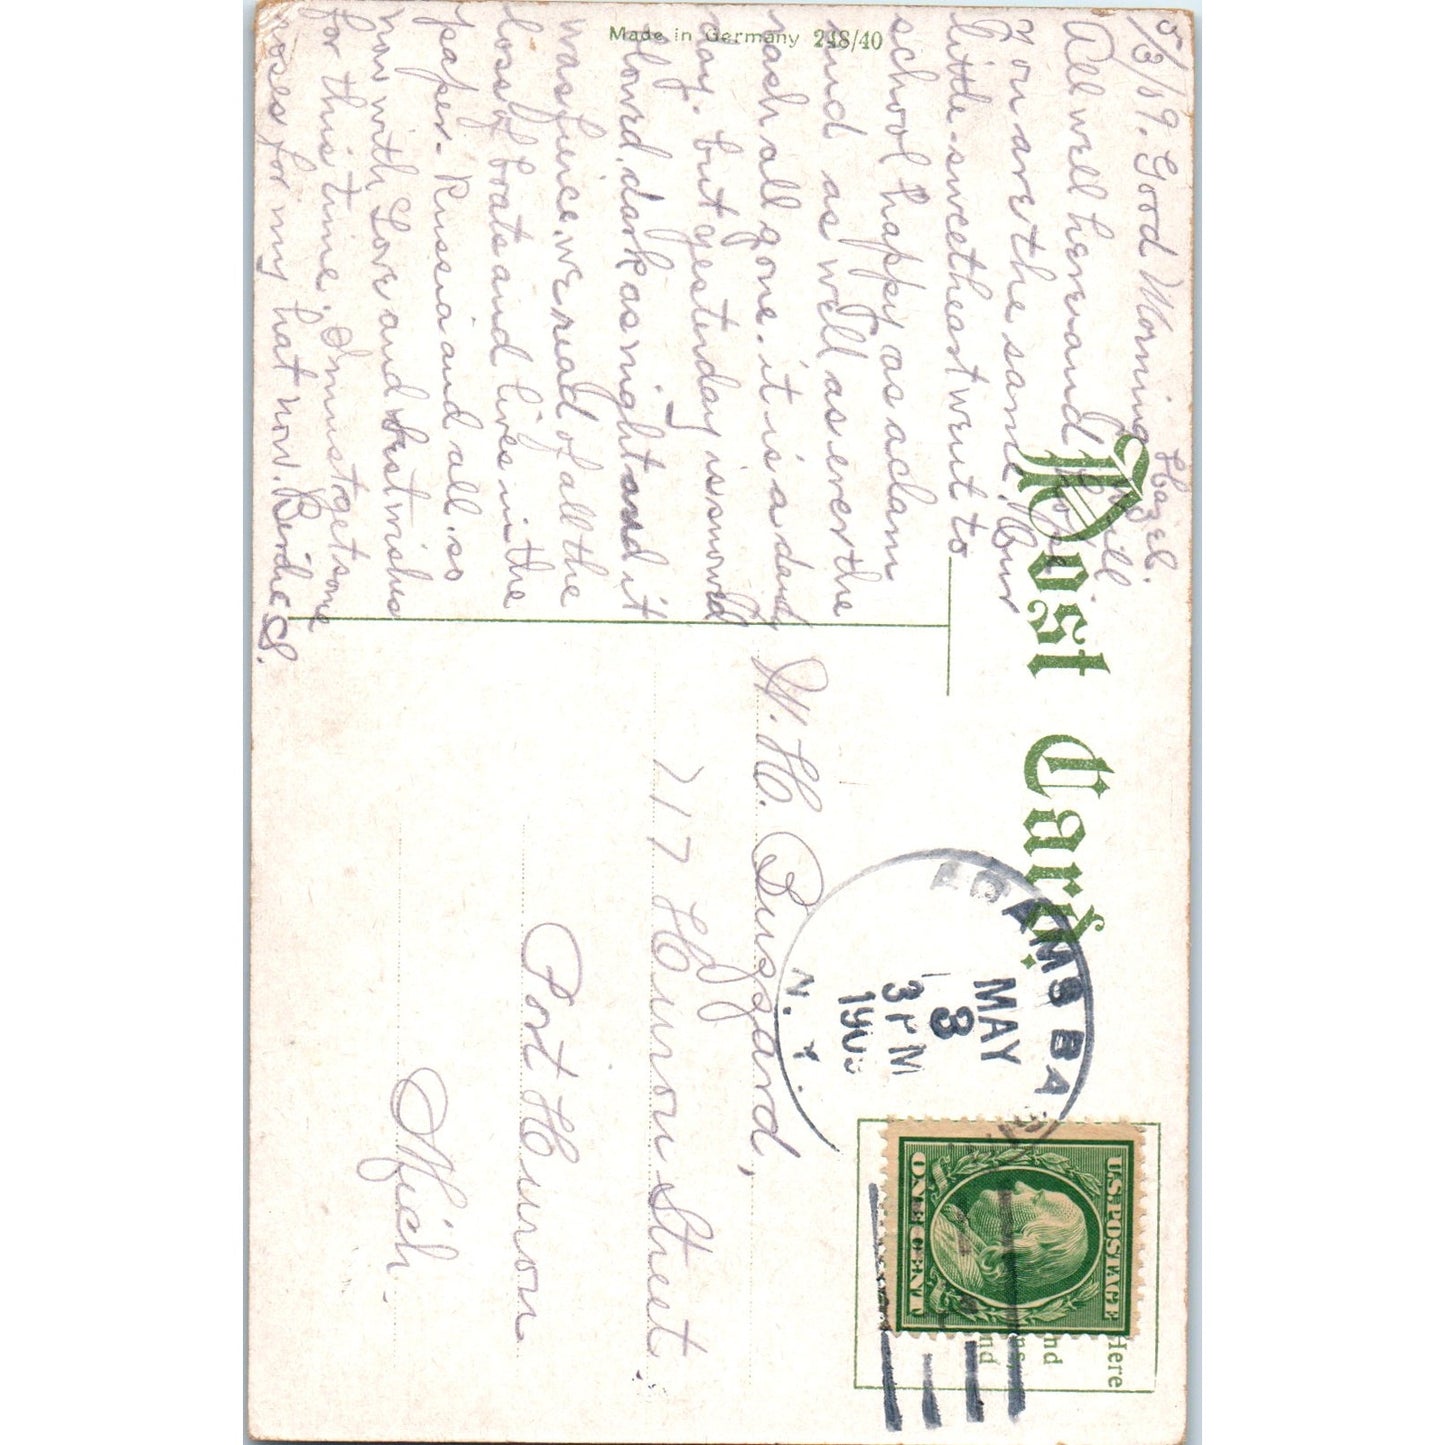 Post Card.
Made in Germany 248/40
5/3/09. Good Morning Hazel.
All well here and will hope
you are the same. Our
little sweetheart went to
school happy as a clam
and as well as ever the
rash all gone. it is a dandy
day. but yesterday is snowed
blowed, dark as night and it
was fierce. we read of all the
loss of boats and lives in the
paper. Russia and all. so
now with Love and best wishes
for this time, I must get some
roses for my hat now. Berdie S.
W. H. Buzzard,
717 Huron Street
Port Huron
Mich.
ADAMS BA
N. Y.
MAY
3
3 PM
190
U.S. POSTAGE
ONE CENT
Here
nd
nd